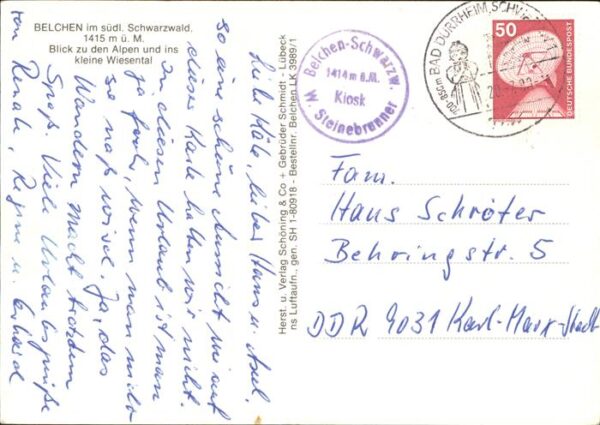 BELCHEN im südl. Schwarzwald.
1415 m ü. M.
Blick zu den Alpen und ins
kleine Wiesental
Liebe Käte, lieber Hans u. Axel.
so eine schöne Aussicht wie auf
dieser Karte hatten wir nicht.
In diesem Urlaub ist man
ja froh, wenn man nicht
so naß wird. Ja, das
Wandern macht trotzdem
Spaß. Viele Urlaubsgrüße
von Renate, Regina u. Erhard
Herst. u. Verlag Schöning & Co + Gebrüder Schmidt - Lübeck
ns Luftaufn., gen. SH 1-80918 - Bestellnr. Belchen LK 3989/1
Belchen-Schwarzw.
1414 m ü.M.
Kiosk
W. Steinebrunner
700-850m BAD DÜRRHEIM,
50
DEUTSCHE BUNDESPOST
Fam.
Hans Schröter
Behringstr. 5
DDR 9031 Karl-Marx-Stadt